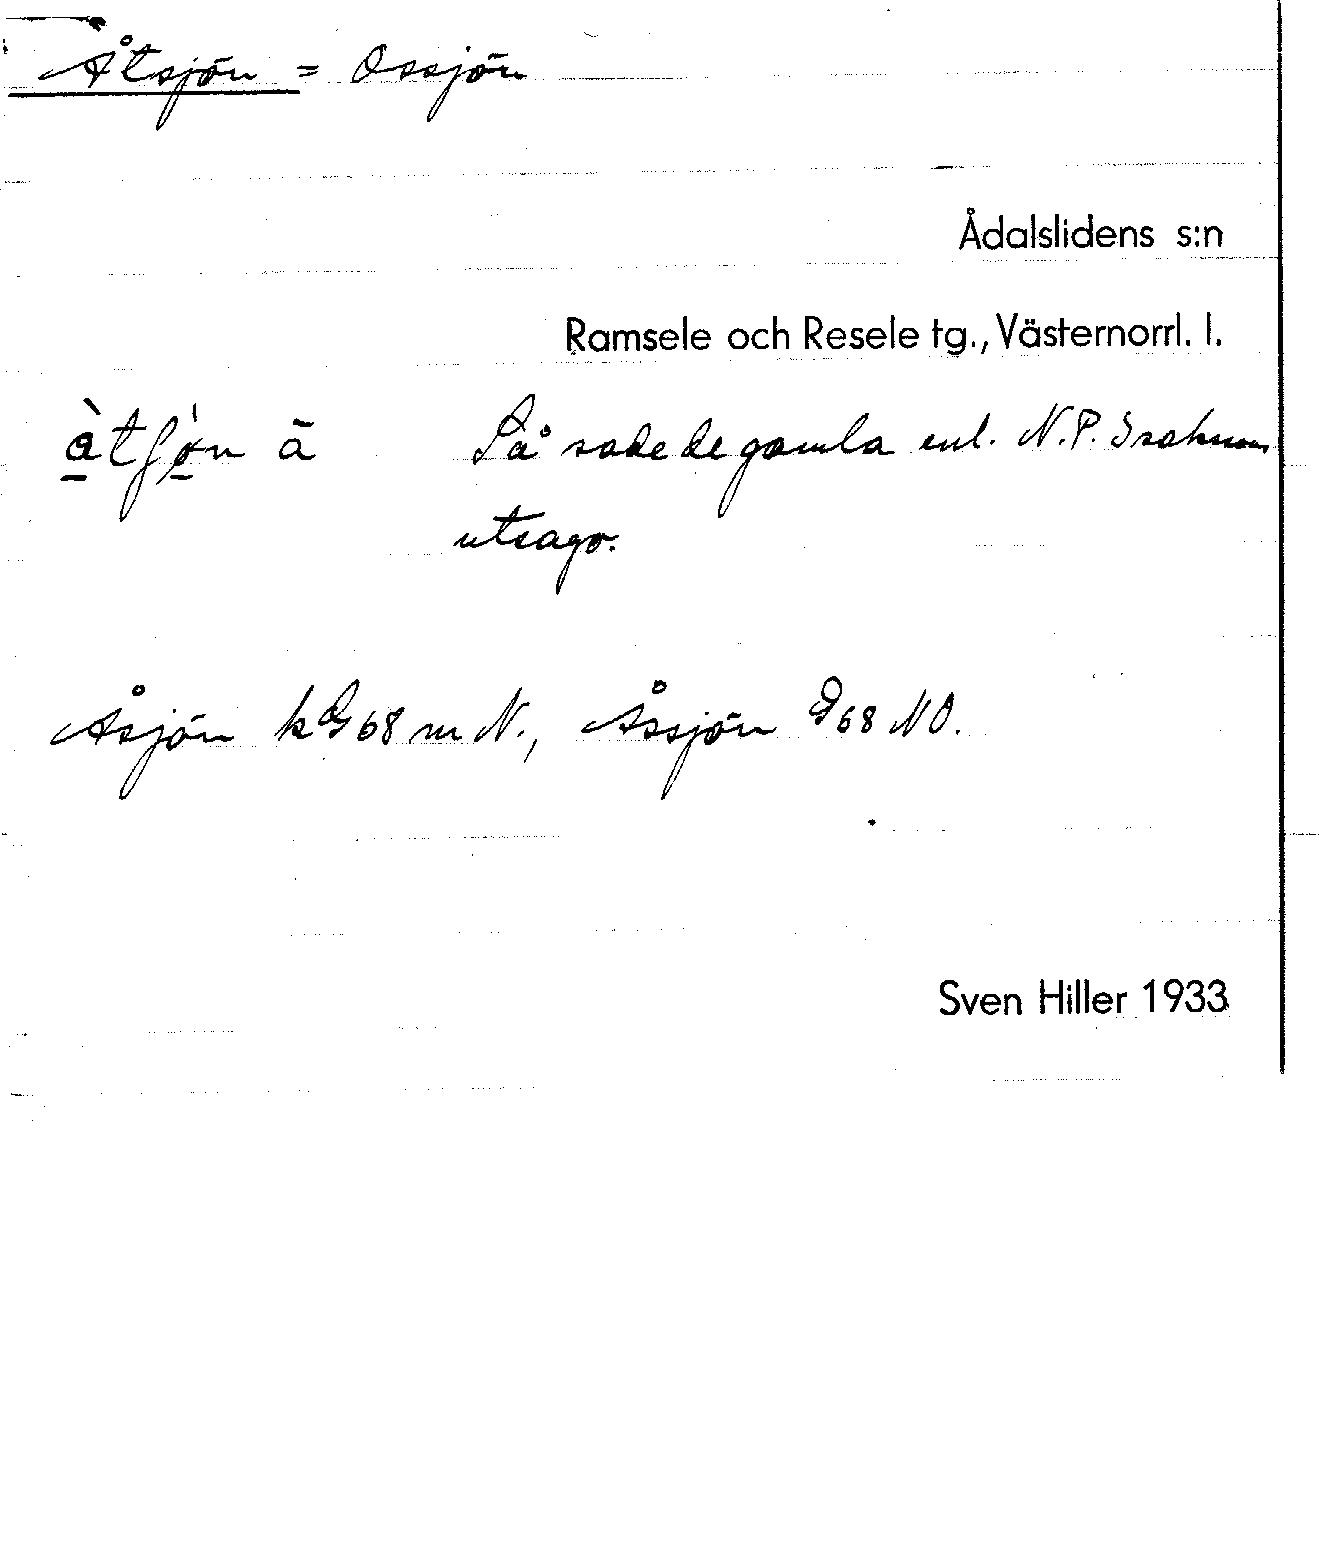 Åtsjön = Ossjön
Ådalslidens s:n
Ramsele och Resele tg., Västernorrl. l.
àtʃø̀n ā Så sade de gamla enl. N.P. Isaksons
utsago.
Åsjön k G 68 m N., Åssjön G 68 NO.
Sven Hiller 1933